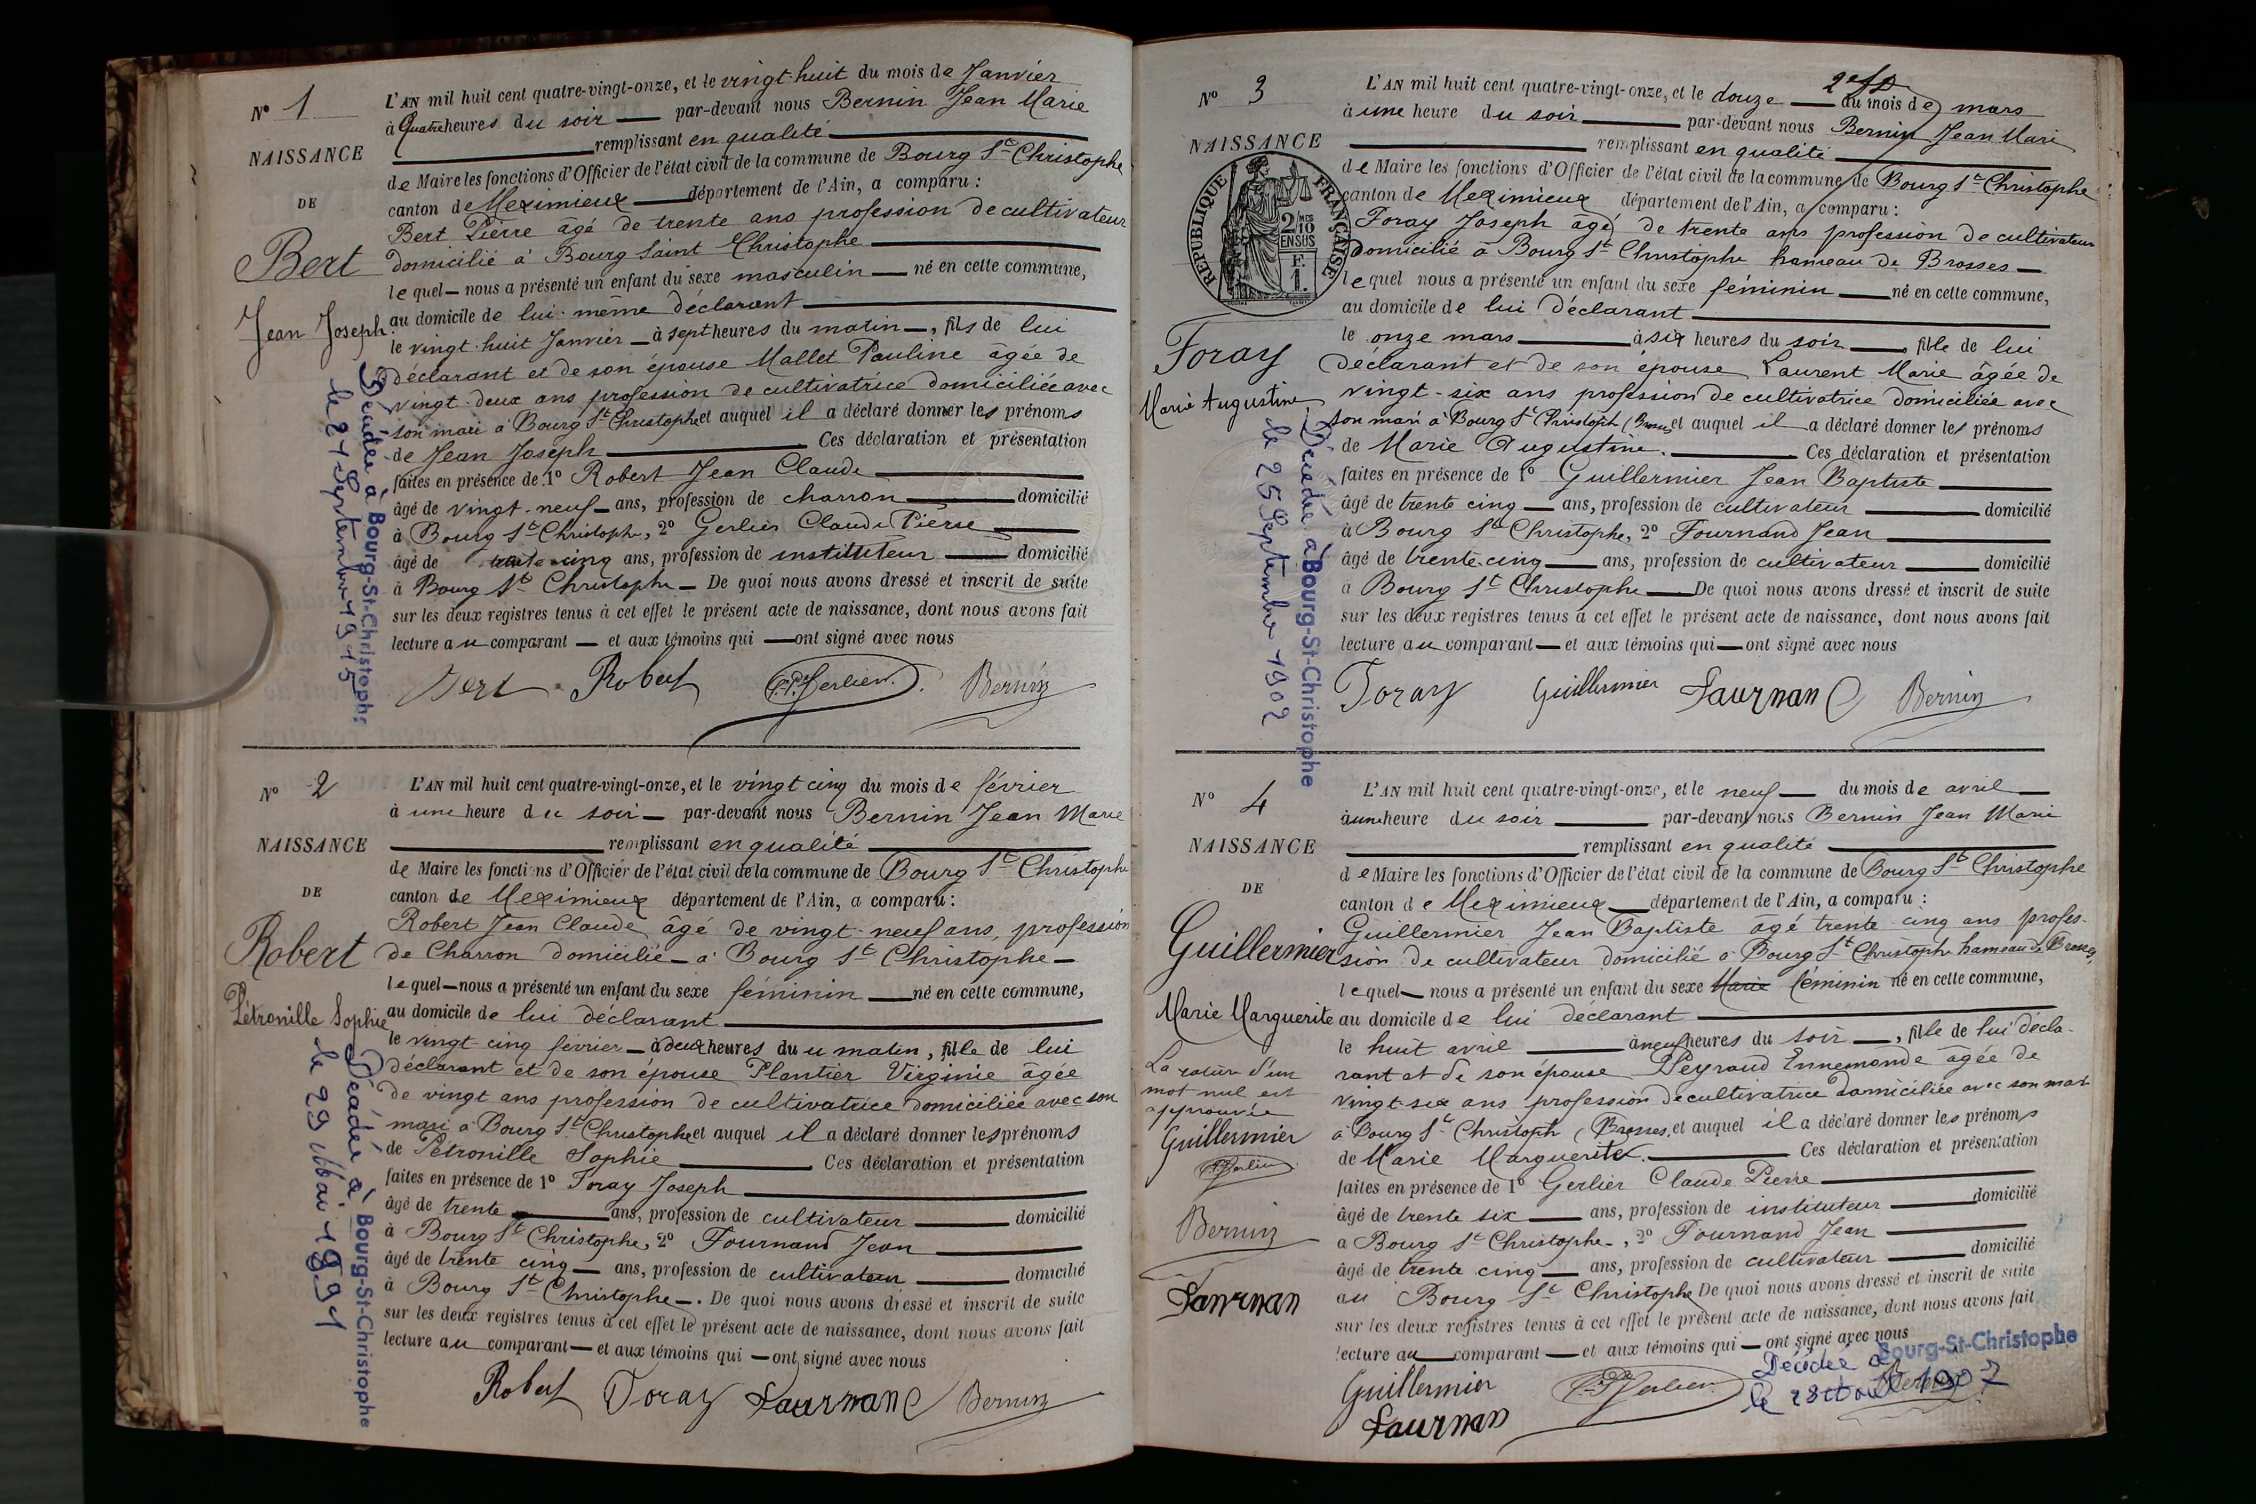 N° 1
NAISSANCE
DE
Bert
Jean Joseph.
Décédé à Bourg-St-Christophe
le 21 Septembre 1915
L'AN mil huit cent quatre-vingt-onze, et le vingt-huit du mois de Janvier
à Quatre heures du soir — par-devant nous Bernin Jean Marie
remplissant en qualité
de Maire les fonctions d'Officier de l'état civil de la commune de Bourg St Christophe
canton de Meximieux — département de l'Ain, a comparu :
Bert Pierre âgé de trente ans profession de cultivateur
domicilié à Bourg Saint Christophe —
lequel — nous a présenté un enfant du sexe masculin — né en cette commune,
au domicile de lui-même déclarant —
le vingt-huit Janvier — à sept heures du matin —, fils de lui
déclarant et de son épouse Mallet Pauline âgée de
vingt-deux ans profession de cultivatrice domiciliée avec
son mari à Bourg St Christophe et auquel il a déclaré donner les prénoms
de Jean Joseph — Ces déclaration et présentation
faites en présence de 1° Robert Jean Claude —
âgé de vingt-neuf — ans, profession de charron — domicilié
à Bourg St Christophe, 2° Gerlier Claude Pierre —
âgé de trente-cinq ans, profession de instituteur — domicilié
à Bourg St Christophe — De quoi nous avons dressé et inscrit de suite
sur les deux registres tenus à cet effet le présent acte de naissance, dont nous avons fait
lecture au comparant — et aux témoins qui — ont signé avec nous
Bert Robert C. P. Gerlier. Bernin
N° 2
NAISSANCE
DE
Robert
Pétronille Sophie
Décédé à Bourg-St-Christophe
le 29 Mai 1891
L'AN mil huit cent quatre-vingt-onze, et le vingt cinq du mois de février
à une heure du soir — par-devant nous Bernin Jean Marie
remplissant en qualité
de Maire les fonctions d'Officier de l'état civil de la commune de Bourg St Christophe
canton de Meximieux département de l'Ain, a comparu :
Robert Jean Claude âgé de vingt-neuf ans, profession
de Charron domicilié — à Bourg St Christophe —
lequel — nous a présenté un enfant du sexe féminin — né en cette commune,
au domicile de lui déclarant —
le vingt cinq fevrier — à deux heures du u matin, fille de lui
déclarant et de son épouse Plantier Virginie âgée
de vingt ans profession de cultivatrice domiciliée avec son
mari à Bourg St Christophe et auquel il a déclaré donner les prénoms
de Pétronille Sophie — Ces déclaration et présentation
faites en présence de 1° Foray Joseph —
âgé de trente — ans, profession de cultivateur — domicilié
à Bourg St Christophe, 2° Fournand Jean —
âgé de trente cinq — ans, profession de cultivateur — domicilié
à Bourg St Christophe —. De quoi nous avons dressé et inscrit de suite
sur les deux registres tenus à cet effet le présent acte de naissance, dont nous avons fait
lecture au comparant — et aux témoins qui — ont signé avec nous
Robert Foray Faurnand Bernin
N° 3
NAISSANCE
RÉPUBLIQUE FRANÇAISE
2/10 MES
EN SUS
F.
1.
Foray
Marie Augustine
Décédée à Bourg-St-Christophe
le 25 Septembre 1902
L'AN mil huit cent quatre-vingt-onze, et le douze — du mois de mars
à une heure du soir — par-devant nous Bernin Jean Marie
remplissant en qualité
de Maire les fonctions d'Officier de l'état civil de la commune de Bourg St Christophe
canton de Meximieux département de l'Ain, a comparu :
Foray Joseph âgé de trente ans profession de cultivateur
domicilié à Bourg St Christophe hameau de Brosses —
lequel nous a présenté un enfant du sexe féminin — né en cette commune,
au domicile de lui déclarant —
le onze mars — à six heures du soir —, fille de lui
déclarant et de son épouse Laurent Marie âgée de
vingt-six ans profession de cultivatrice domiciliée avec
son mari à Bourg St Christoph (Brosses et auquel il a déclaré donner les prénoms
de Marie Augustine. — Ces déclaration et présentation
faites en présence de 1° Guillermier Jean Baptiste —
âgé de trente cinq — ans, profession de cultivateur — domicilié
à Bourg St Christophe, 2° Fournand Jean —
âgé de trente-cinq — ans, profession de cultivateur — domicilié
à Bourg St Christophe — De quoi nous avons dressé et inscrit de suite
sur les deux registres tenus à cet effet le présent acte de naissance, dont nous avons fait
lecture au comparant — et aux témoins qui — ont signé avec nous
Foray Guillermier Faurnand Bernin
N° 4
NAISSANCE
DE
Guillermier
Marie Marguerite
La rature d'un
mot nul est
approuvée
Guillermier
C.P. Gerlier
Bernin
Faurnan
L'AN mil huit cent quatre-vingt-onze, et le neuf — du mois de avril —
à une heure du soir — par-devant nous Bernin Jean Marie
remplissant en qualité —
de Maire les fonctions d'Officier de l'état civil de la commune de Bourg St Christophe
canton de Meximieux — département de l'Ain, a comparu :
Guillermier Jean Baptiste âgé trente-cinq ans profes-
sion de cultivateur domicilié à Bourg St Christophe hameau de Brosses,
lequel — nous a présenté un enfant du sexe Marie féminin né en cette commune,
au domicile de lui déclarant —
le huit avril — à neuf heures du soir —, fille de lui décla-
rant et de son épouse Peyraud Ennemonde âgée de
vingt-six ans profession de cultivatrice domiciliée avec son mari
à Bourg St Christoph (Brosses, et auquel il a déclaré donner les prénoms
de Marie Marguerite. — Ces déclaration et présentation
faites en présence de 1° Gerlier Claude Pierre —
âgé de trente six — ans, profession de instituteur — domicilié
à Bourg St Christophe -, 2° Fournand Jean —
âgé de trente cinq — ans, profession de cultivateur — domicilié
au Bourg St Christophe De quoi nous avons dressé et inscrit de suite
sur les deux registres tenus à cet effet le présent acte de naissance, dont nous avons fait
lecture au — comparant — et aux témoins qui — ont signé avec nous
Décédée à Bourg-St-Christophe
le 1907
Guillermier C. P. Gerlier. Bernin
Faurnan